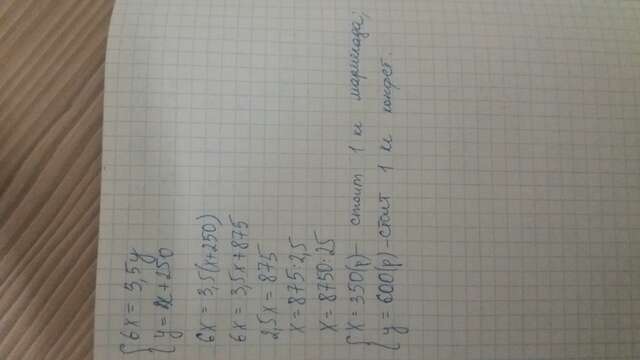 6x = 3,5y
y = x+250
6x = 3,5(x+250)
6x = 3,5x+875
2,5x = 875
x = 875:2,5
x = 8750:25
x = 350(р)- стоит 1 кг мармелада;
y = 600(р)-стоит 1 кг конфет.